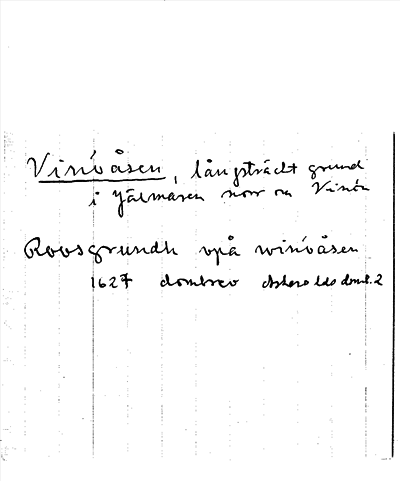 Vinöåsen, långsträckt grund
i Hjälmaren norr om Vinön
Roosgrundh vpå winöåsen
1627 dombrev